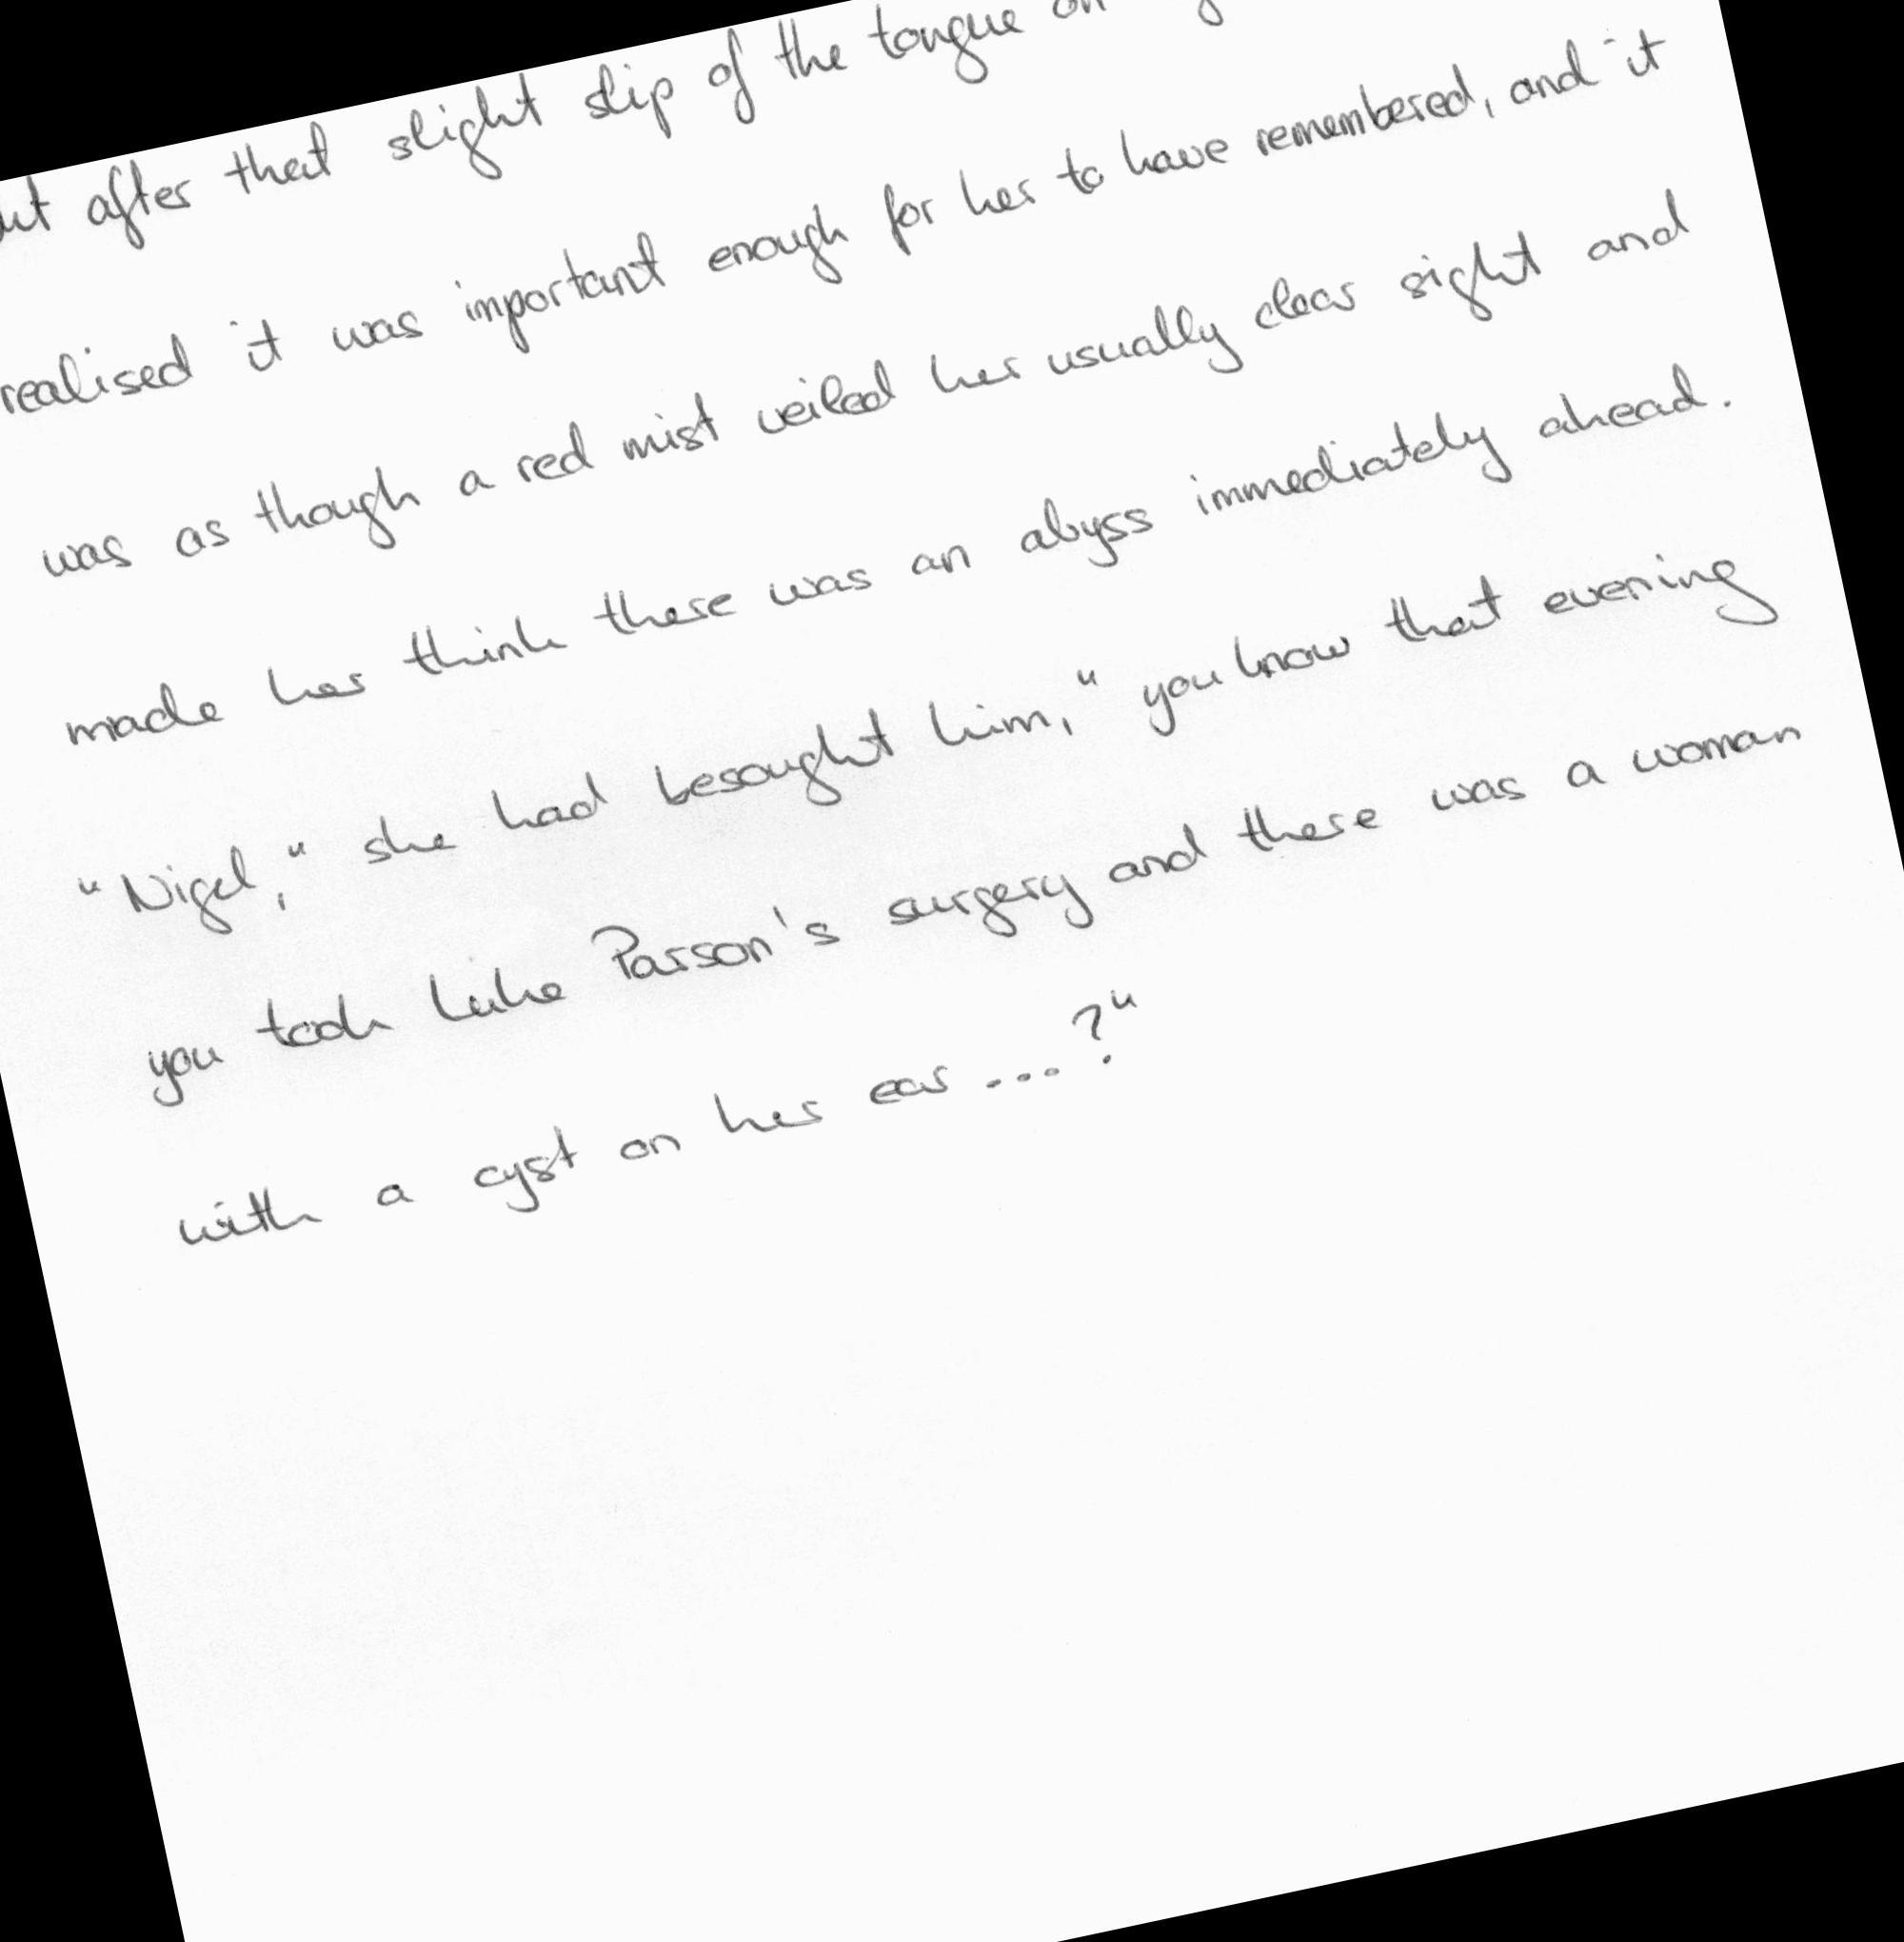 after that slight slip of the tongue on
realised it was important enough for her to have remembered, and it
was as though a red mist veiled her usually clear sight and
made her think there was an abyss immediately ahead.
"Nigel," she had besought him, "you know that evening
you took Luke Parson's surgery and there was a woman
with a cyst on her ear ...?"